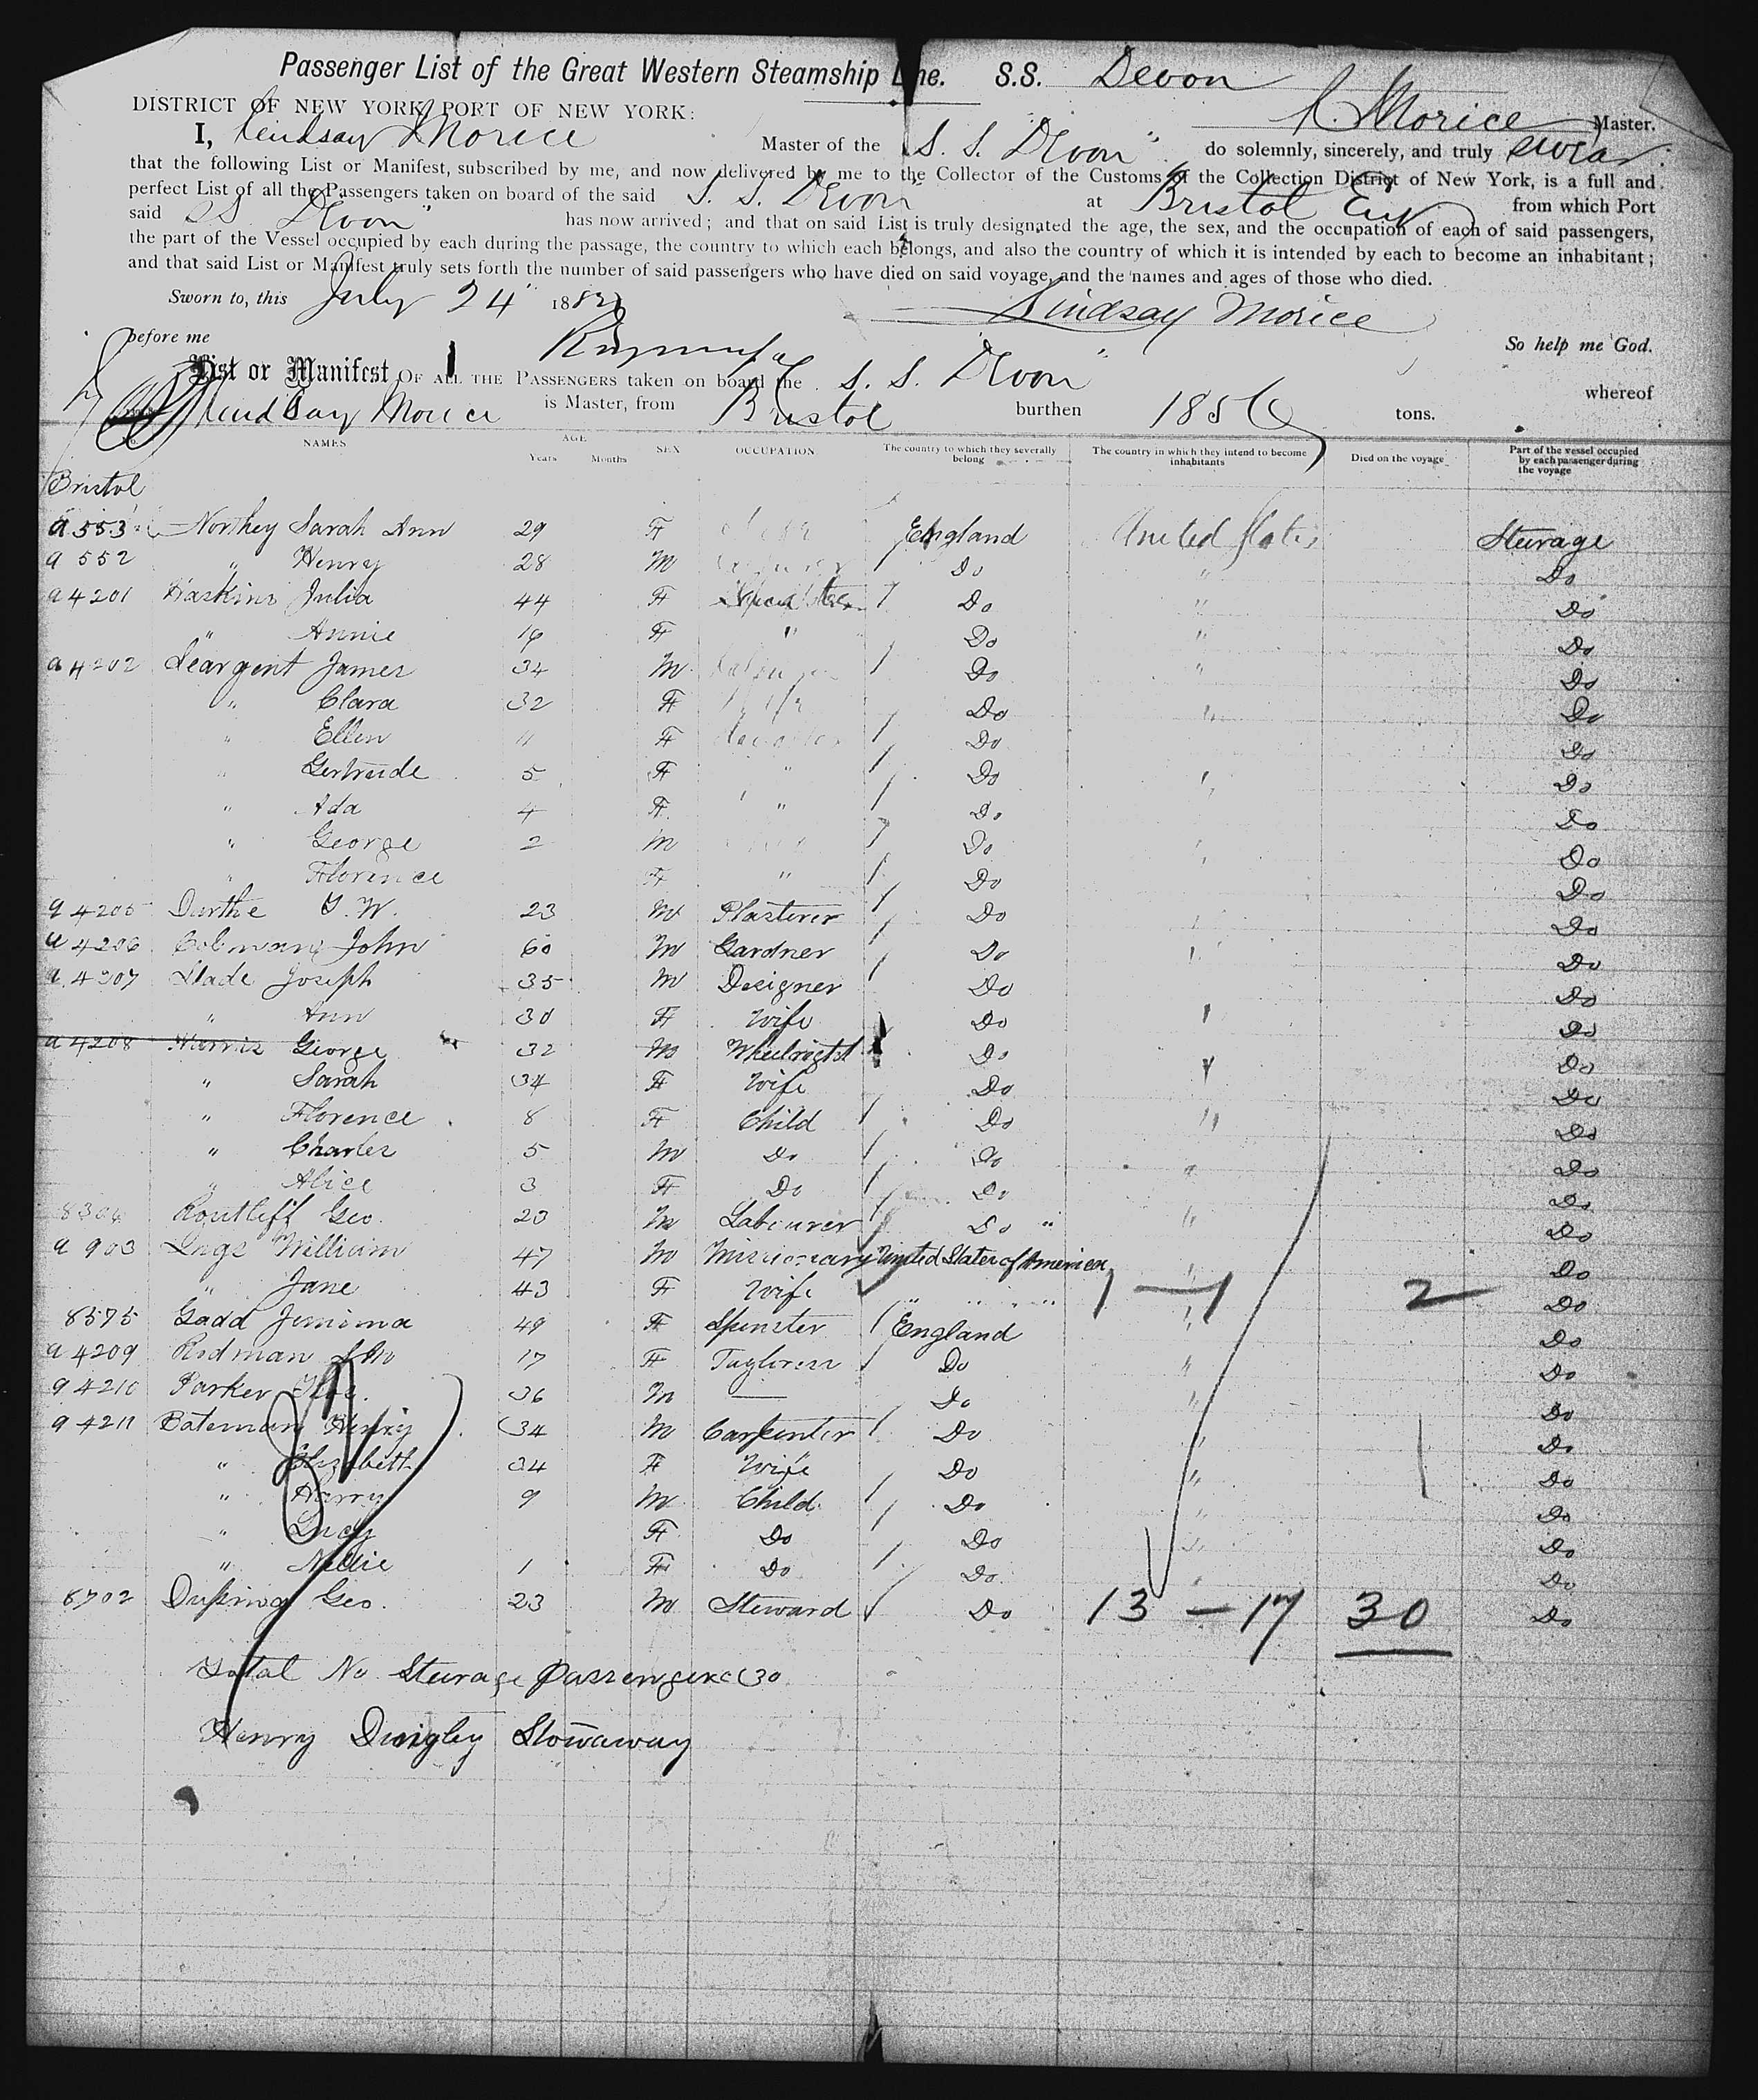 Passenger List of the Great Western Steamship Line. S.S. Devon
DISTRICT OF NEW YORK, PORT OF NEW YORK: L. Morice Master.
I, Lindsay Morice Master of the S. S. "Devon" do solemnly, sincerely, and truly swear
that the following List or Manifest, subscribed by me, and now delivered by me to the Collector of the Customs of the Collection District of New York, is a full and
perfect List of all the Passengers taken on board of the said S. S. Devon at Bristol from which Port
said S.S. Devon" has now arrived; and that on said List is truly designated the age, the sex, and the occupation of each of said passengers,
the part of the Vessel occupied by each during the passage, the country to which each belongs, and also the country of which it is intended by each to become an inhabitant;
and that said List or Manifest truly sets forth the number of said passengers who have died on said voyage, and the names and ages of those who died.
Sworn to, this July 24" 188 Lindsay Morice
before me So help me God.
List or Manifest OF ALL THE PASSENGERS taken on board the S. S. Devon" whereof
Lindsay Morice is Master, from Bristol burthen 1856 tons.
NAMES AGE Years Months SEX OCCUPATION The country to which they severally belong The country in which they intend to become inhabitants Died on the voyage Part of the vessel occupied by each passenger during the voyage
Bristol
a 553 Northey Sarah Ann 29 F England United States Steerage
a 552 " Henry 28 M Do " Do
a 4201 Haskins Julia 44 F Do " Do
" Annie 16 F " Do " Do
a 4202 Seargent James 34 M Do " Do
" Clara 32 F Wife Do " Do
" Ellen 11 F Do Do
" Gertrude 5 F " Do " Do
" Ada 4 F " Do Do
" George 2 M Do " Do
" Florence F " Do " Do
a 4205 Durthe W. 23 M Plasterer Do " Do
a 4206 Colmans John 60 M Gardner Do " Do
a 4207 Slade Joseph 35 M Designer Do Do
" Ann 30 F Wife Do " Do
a 4208 Harris George 32 M Wheelwright Do Do
" Sarah 34 F Wife Do " Do
" Florence 8 F Child Do " Do
" Charles 5 M Do Do " Do
" Alice 3 F Do Do Do
Routliff Geo. 23 M Labourer Do " " Do
a 903 Ings William 47 M Missionary United States of America " Do
" Jane 43 F Wife " " " " 1 — 1 2 Do
8575 Gadd Jemima 49 F Spinster England " Do
a 4209 Rodman 17 F Tayloress Do " Do
a 4210 Parker 36 M — Do " Do
a 4211 Bateman Henry 34 M Carpenter Do " Do
" Elizabeth 34 F Wife Do " Do
" Harry 9 M Child Do " Do
" Lucy F Do Do " Do
" Nellie 1 F Do Do " Do
8702 Geo. 23 M Steward Do 13 — 17 30 Do
Total No. Steerage Passengers 30
Henry Stowaway